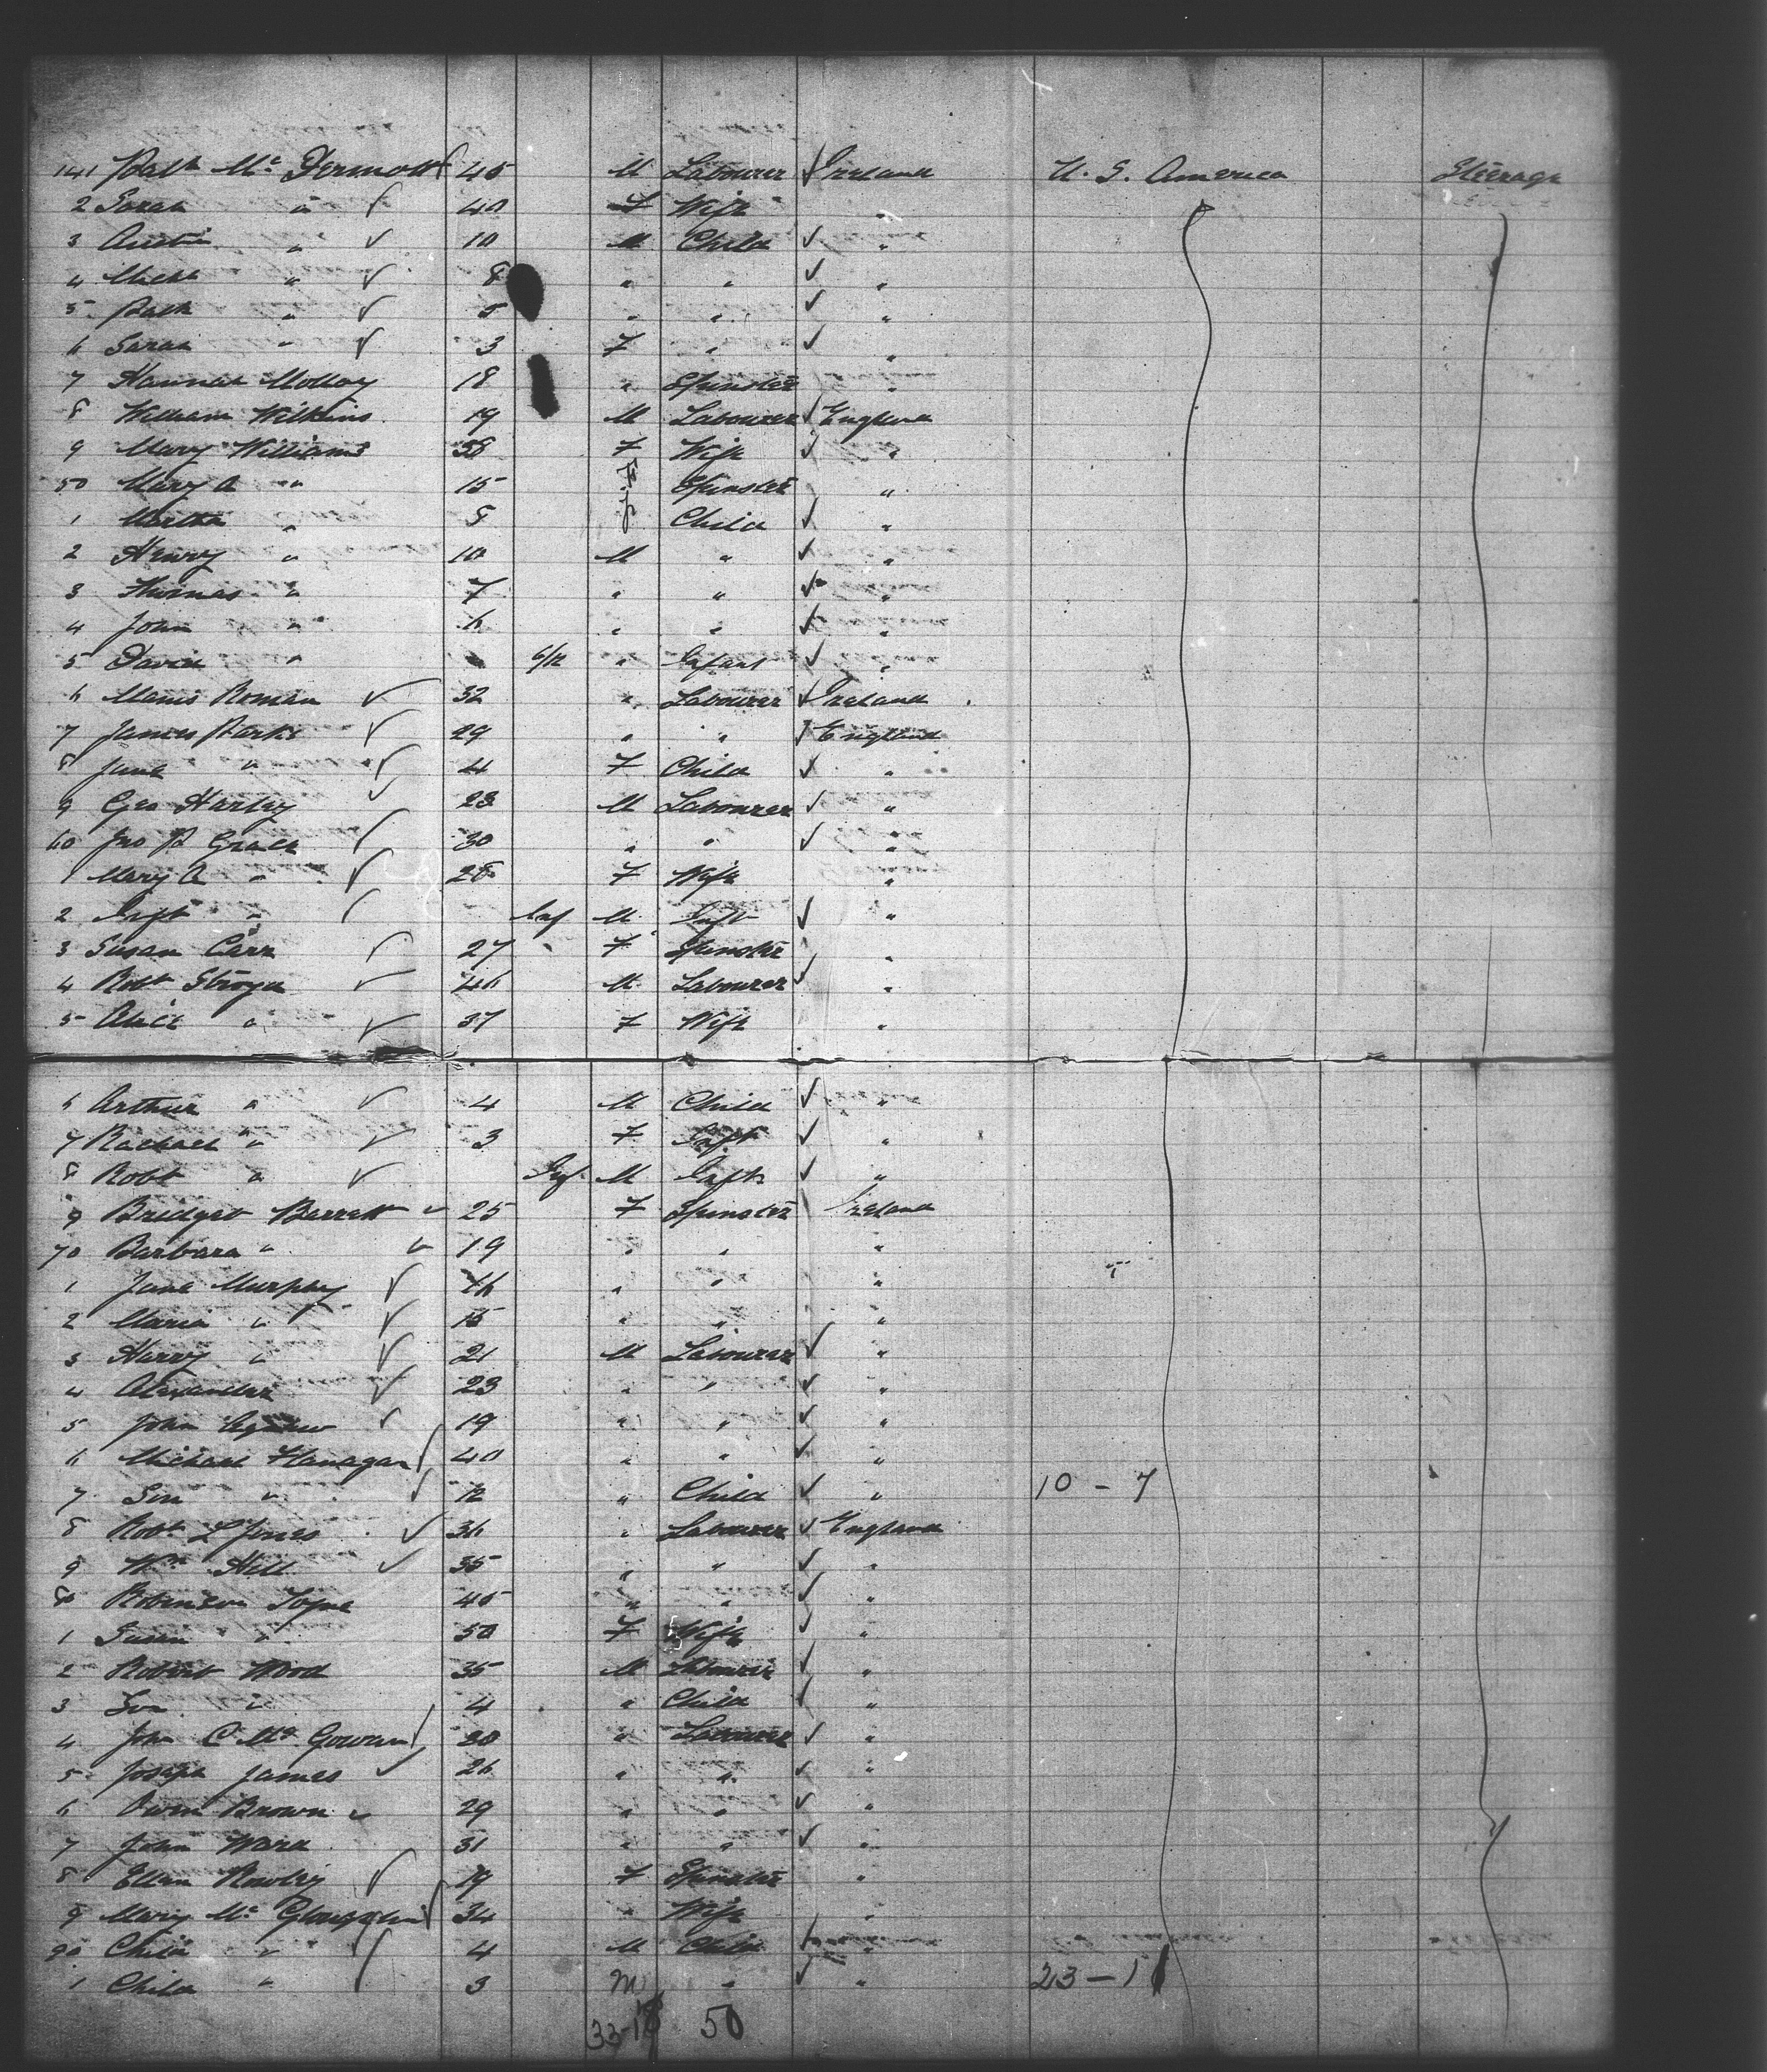 141 Patk Mc Dermott 45 M Labourer Ireland U. S. America Steerage
2 Sarah " 40 F Wife "
3 Austin " 10 M Child "
4 Michl " 8 " " "
5 Patk " 5 " " "
6 Sarah " 3 F " "
7 Hannah Molloy 18 " Spinster "
8 William Wilkins 19 M Labourer England
9 Mary Williams 38 F Wife "
50 Mary A " 15 Spinster "
1 Martha " 8 Child "
2 Henry " 10 M " "
3 Thomas " 7 " " "
4 John " 6 " " "
5 David " 6/12 " Infant "
6 Manis Roman 32 " Labourer Ireland
7 James Parks 29 " " England
8 Jane " 4 F Child "
9 Geo Harley 23 M Labourer "
60 Jno P 30 " " "
1 Mary A " 28 F Wife "
2 Inft " Inf M Inft "
3 Susan Carr 27 F Spinster "
4 Robt 46 M Labourer "
5 Alice " 37 F Wife "
6 Arthur " 4 M Child "
7 Rachael " 3 F Inft "
8 Robt " Inf M Inft "
9 Bridget Barrett 25 F Spinster Ireland
70 Barbara " 19 " " "
1 Jane Murphy 16 " " "
2 Maria " 15 " " "
3 Harry " 21 M Labourer "
4 Alexander 23 " " "
5 John Agnew 19 " " "
6 Michael Flanagan 40 " " "
7 Son " 12 " Child " 10 - 7
8 Robt L Jones 36 " Labourer England
9 Wm Hill 35 " " "
80 Robinson 45 " " "
1 Susan " 50 F Wife "
2 Robert Wood 35 M Labourer "
3 Son " 4 " Child "
4 John C McGowan 20 " Labourer "
5 Joseph James 26 " " "
6 Owen Brown 29 " " "
7 John Ward 31 " " "
8 Ellen Rowley 19 F Spinster "
9 Mary Mc 34 " Wife "
90 Child " 4 M Child "
1 Child " 3 M " " 23 - 1
33-18 50